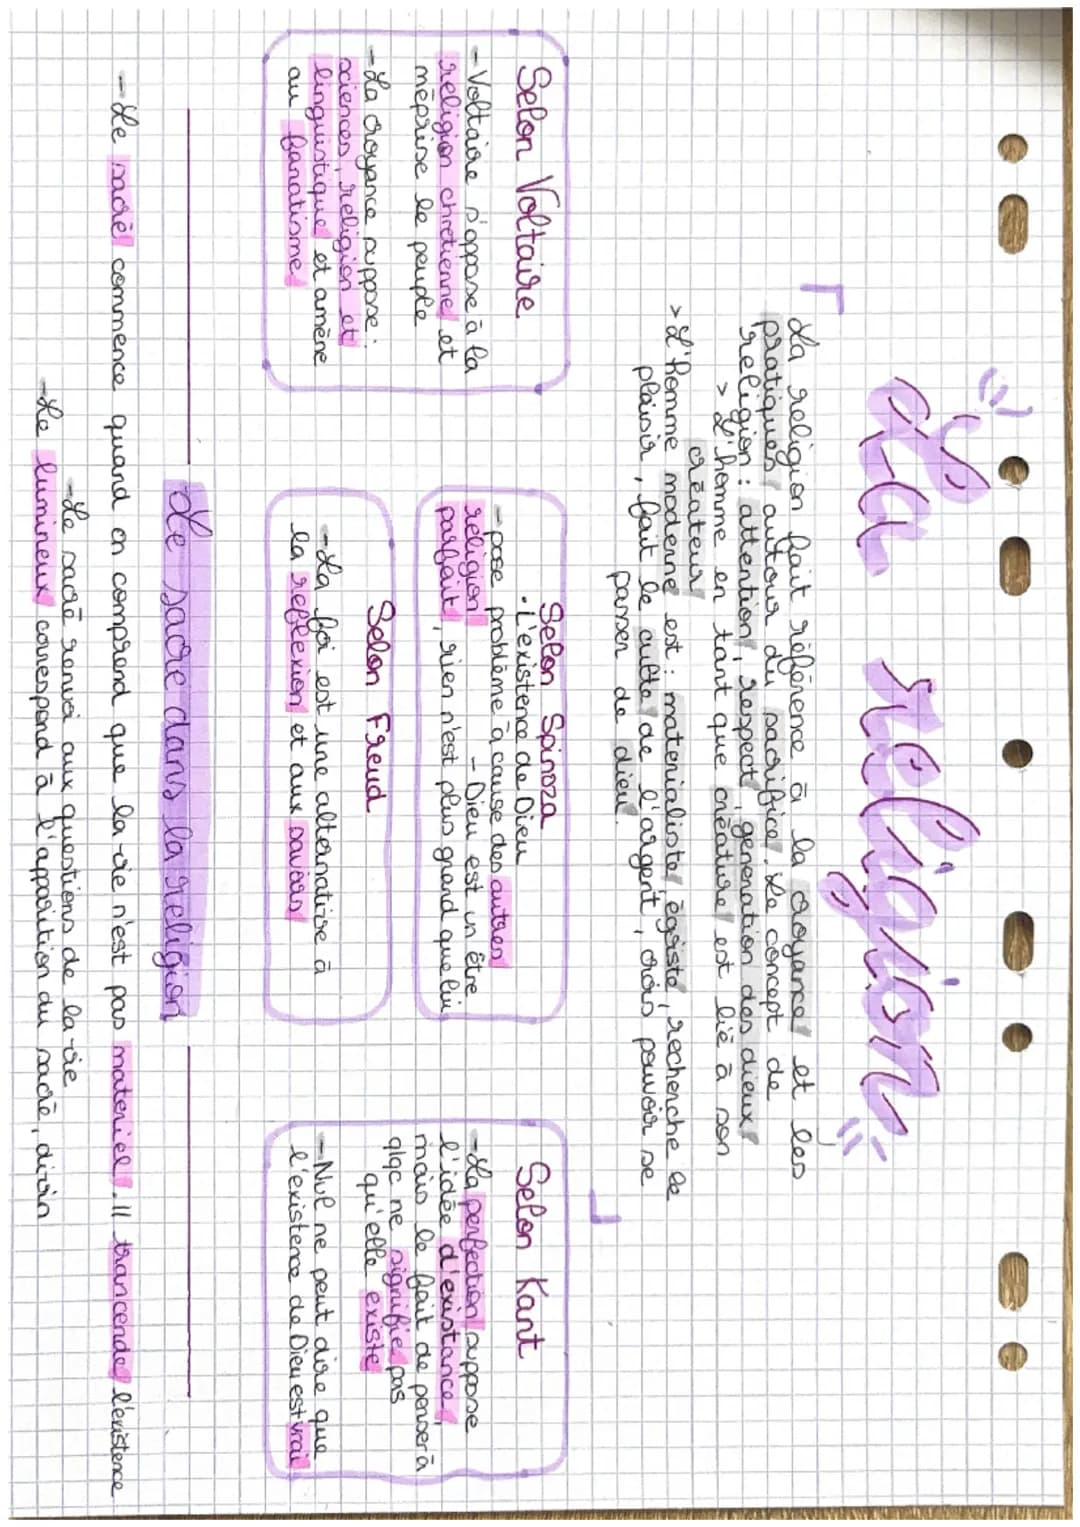 La religion
La religion fait référence à la croyance et les
pratiques autour du sacrifice. Le concept de
religion : attention, respect, génération des dieux
> L'homme en tant que créature est lié à son
créateur
> L'homme moderne est : materialiste, égoïste, recherche le
plaisir, fait le culte de l'argent, crois pouvoir se
passer de dieu.
Selon Voltaire
- Voltaire s'oppose à la
religion chretienne et
méprise le peuple
- La croyance suppose :
sciences, religion et
linguistique et amène
au fanatisme
Selon Spinoza
• L'existence de Dieu
- pose problème à cause des autres
religion - Dieu est un être
parfait, rien n'est plus grand que lui
Selon Freud
- La foi est une alternative à
la reflexion et aux savoirs
Selon Kant
- La perfection suppose
l'idée d'existance,
mais le fait de penser à
qlqc ne signifie pas
qu'elle existe
- Nul ne peut dire que
l'existence de Dieu est vrai
Le sacre dans la religion
- Le sacré commence quand on comprend que la vie n'est pas materiel. Il trancende l'existence
- Le sacré renvoi aux questions de la vie
- Le lumineux correspond à l'apparition du sacré, divin